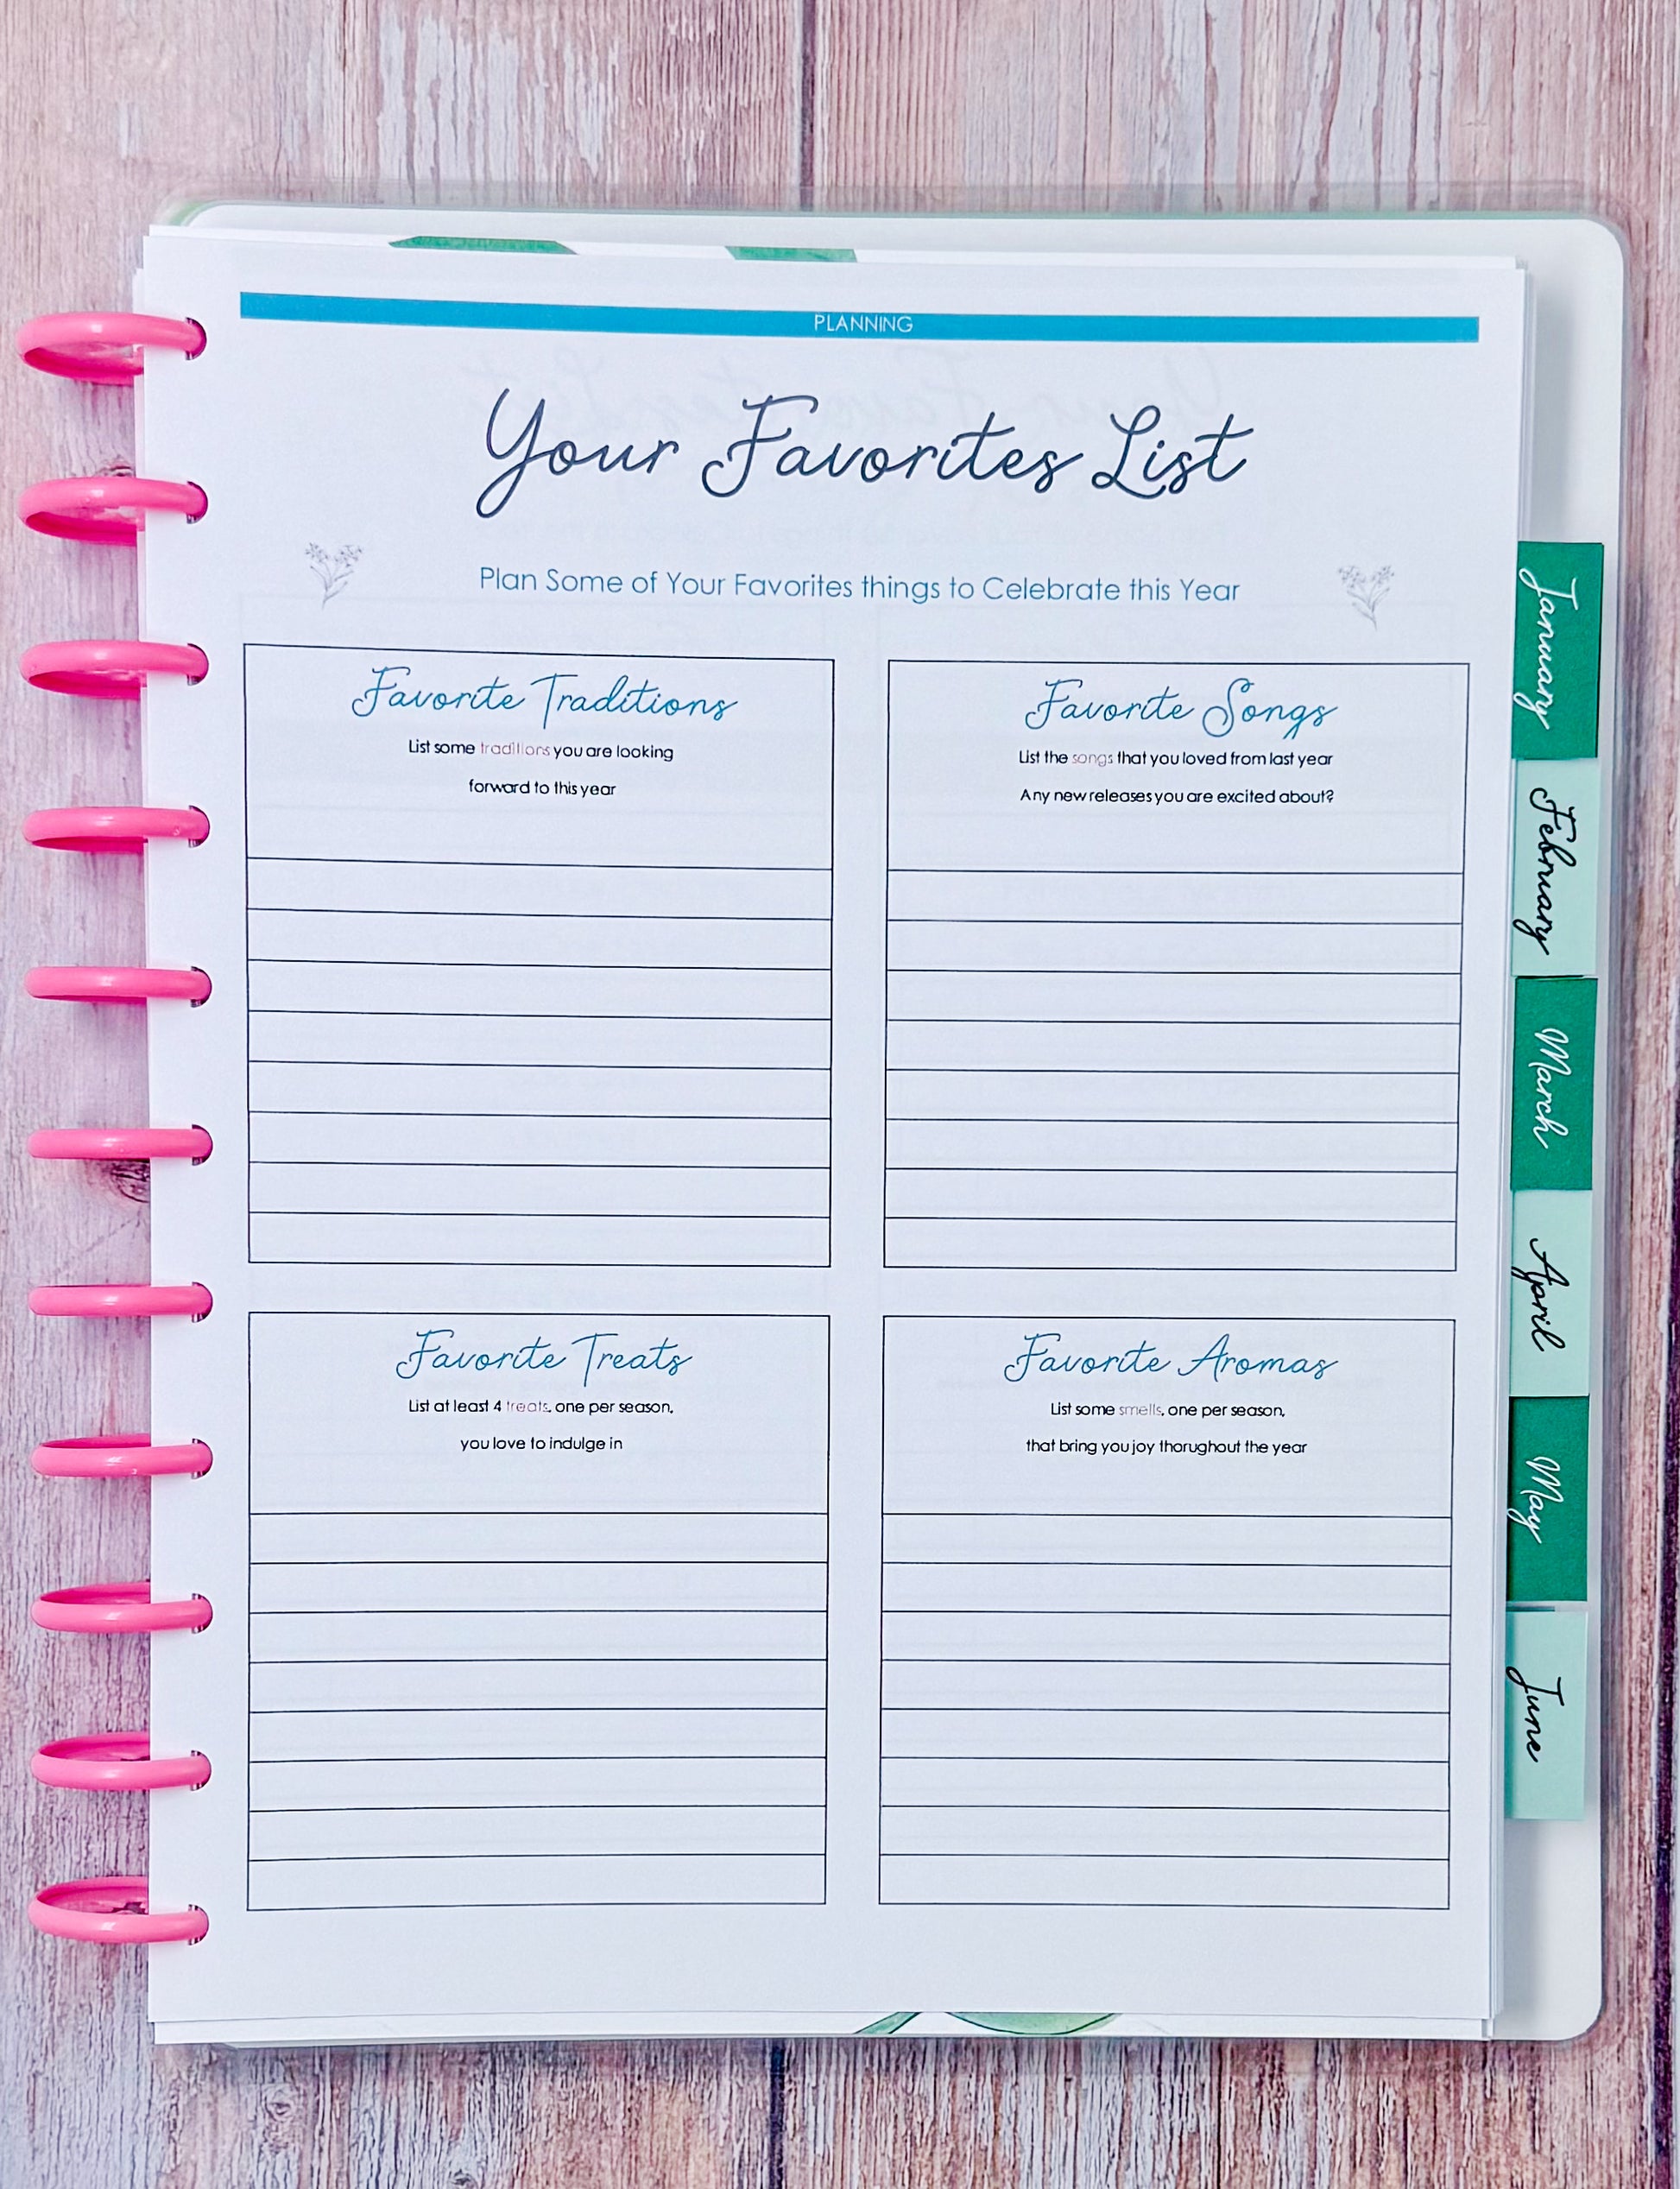 PLANNING
Your Favorites List
Plan Some of Your Favorites things to Celebrate this Year
Favorite Traditions
List some traditions you are looking
forward to this year
Favorite Songs
List the songs that you loved from last year
Any new releases you are excited about?
Favorite Treats
List at least 4 treats, one per season,
you love to indulge in
Favorite Aromas
List some smells, one per season,
that bring you joy thorughout the year
January
February
March
April
May
June